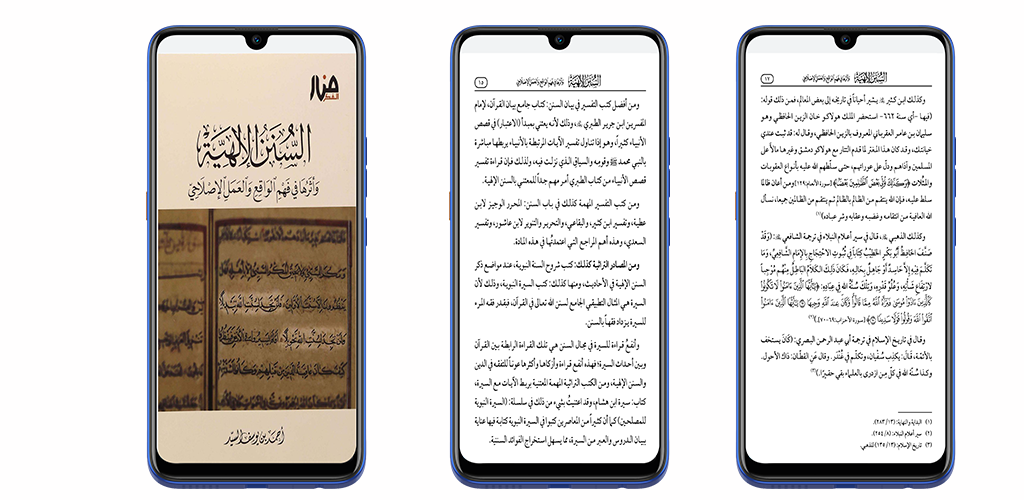 منار
الفكر
السُّنَنُ الإِلٰهِيَّة
وَأَثَرُهَا فِي فَهْمِ الوَاقِعِ وَالعَمَلِ الإِصْلَاحِي
أحمد بن يوسف السيد
السُّنَنُ الإِلٰهِيَّة وَأَثَرُهَا فِي فَهْمِ الوَاقِعِ وَالعَمَلِ الإِصْلَاحِي
١٥
ومن أفضل كتب التفسير في بيان السنن: كتاب جامع بيان القرآن، لإمام
المفسرين ابن جرير الطبري ﷀ، وذلك لأنه يعتني بمبدأ (الاعتبار) في قصص
الأنبياء كثيراً، وهو إذا تناول تفسير الآيات المرتبطة بالأنبياء، يربطها مباشرة
بالنبي محمد ﷺ وقومه والسياق الذي نزلت فيه، ولذلك فإن قراءة تفسير
قصص الأنبياء من كتاب الطبري أمر مهم جداً للمعتني بالسنن الإلهية.
ومن كتب التفسير المهمة كذلك في باب السنن: المحرر الوجيز لابن
عطية، وتفسير ابن كثير، والبقاعي، والتحرير والتنوير لابن عاشور، وتفسير
السعدي، وهذه أهم المراجع التي اعتمدتُها في هذه المادة.
ومن المصادر التراثية كذلك: كتب شروح السنة النبوية، وذلك عند مواضع ذكر
السنن الإلهية في الأحاديث، ومنها كذلك: كتب السيرة النبوية، وذلك لأن
السيرة هي المثال التطبيقي الجامع لسنن الله تعالى في القرآن، فبقدر فقه المرء
للسيرة يزداد فقهاً بالسنن.
وأنفعُ قراءة للسيرة في مجال السنن هي تلك القراءة الرابطة بين القرآن
وبين أحداث السيرة؛ فهذه أنفع قراءة وأزكاها وأكثرها عوناً للتفقه في الدين
والسنن الإلهية، ومن الكتب التراثية المهمة المعتنية بربط الآيات مع السيرة،
كتاب: سيرة ابن هشام، وقد اعتنيتُ بشيء من ذلك في سلسلة: (السيرة النبوية
للمصلحين) كما أن كثيراً من المعاصرين كتبوا في السيرة النبوية كتابة فيها عناية
ببيان الدروس والعبر من السيرة، مما يسهل استخراج الفوائد السننية.
السُّنَنُ الإِلٰهِيَّة وَأَثَرُهَا فِي فَهْمِ الوَاقِعِ وَالعَمَلِ الإِصْلَاحِي
١٢
وكذلك ابن كثير ﷀ يشير أحياناً في تاريخه إلى بعض المعالم، فمن ذلك قوله:
(فيها -أي سنة ٦٦٢- استحضر الملك هولاكو خان الزين الحافظي وهو
سليمان بن عامر العقرباني المعروف بالزين الحافظي، وقال له: قد ثبت عندي
خيانتك، وقد كان هذا المغتر لما قدم التتار مع هولاكو دمشق وغيرها مالأ على
المسلمين وآذاهم ودلّ على عوراتهم، حتى سلّطهم الله عليه بأنواع العقوبات
والمثُلات ﴿وَكَذَٰلِكَ نُوَلِّي بَعْضَ ٱلظَّٰلِمِينَ بَعْضًا﴾ [سورة الأنعام: ١٢٩] ومن أعان ظالمًا
سلط عليه، فإن الله ينتقم من الظالم بالظالم ثم ينتقم من الظالمين جميعا، نسأل
الله العافية من انتقامه وغضبه وعقابه وشر عباده)(١)
وكذلك الذهبي ﷀ، قال في سير أعلام النبلاء في ترجمة الشافعي ﷀ: (وَقَدْ
صَنَّفَ الحَافِظُ أَبُو بَكْرٍ الخَطِيْبُ كِتَاباً فِي ثُبُوتِ الاحْتِجَاجِ بِالإِمَامِ الشَّافِعِيِّ، وَمَا
تَكَلَّمَ فِيهِ إِلاَّ حَاسِدٌ أَوْ جَاهِلٌ بِحَالِهِ، فَكَانَ ذَلِكَ الكَلاَمُ البَاطِلُ مِنْهُم مُوجِباً
لارْتِفَاعِ شَأْنِهِ، وَعُلُوِّ قَدْرِهِ، وَتِلْكَ سُنَّةُ اللهِ فِي عِبَادِهِ: ﴿يَٰٓأَيُّهَا ٱلَّذِينَ ءَامَنُوا۟ لَا تَكُونُوا۟
كَٱلَّذِينَ ءَاذَوْا۟ مُوسَىٰ فَبَرَّأَهُ ٱللَّهُ مِمَّا قَالُوا۟ وَكَانَ عِندَ ٱللَّهِ وَجِيهًا ۝ يَٰٓأَيُّهَا ٱلَّذِينَ ءَامَنُوا۟
ٱتَّقُوا۟ ٱللَّهَ وَقُولُوا۟ قَوْلًا سَدِيدًا ۝﴾ [سورة الأحزاب: ٦٩-٧٠].)(٢)
وقال في تاريخ الإسلام في ترجمة أبي عبد الرحمن البصري: (كَانَ يستخف
بالأئمة، قَالَ: يكذِب سُفْيَان، وتكلّم في غُنْدَر. وقال عَنِ القطّان: ذاك الأحول.
وكذا سُنّة الله في كلّ من ازدرى بالعلماء بقي حقيرًا.)(٣)
(١) البداية والنهاية: (١٣/ ٢٨٣).
(٢) سير أعلام النبلاء: (٨/ ٢٥٤).
(٣) تاريخ الإسلام: (١٣/ ١٣٥) للذهبي.